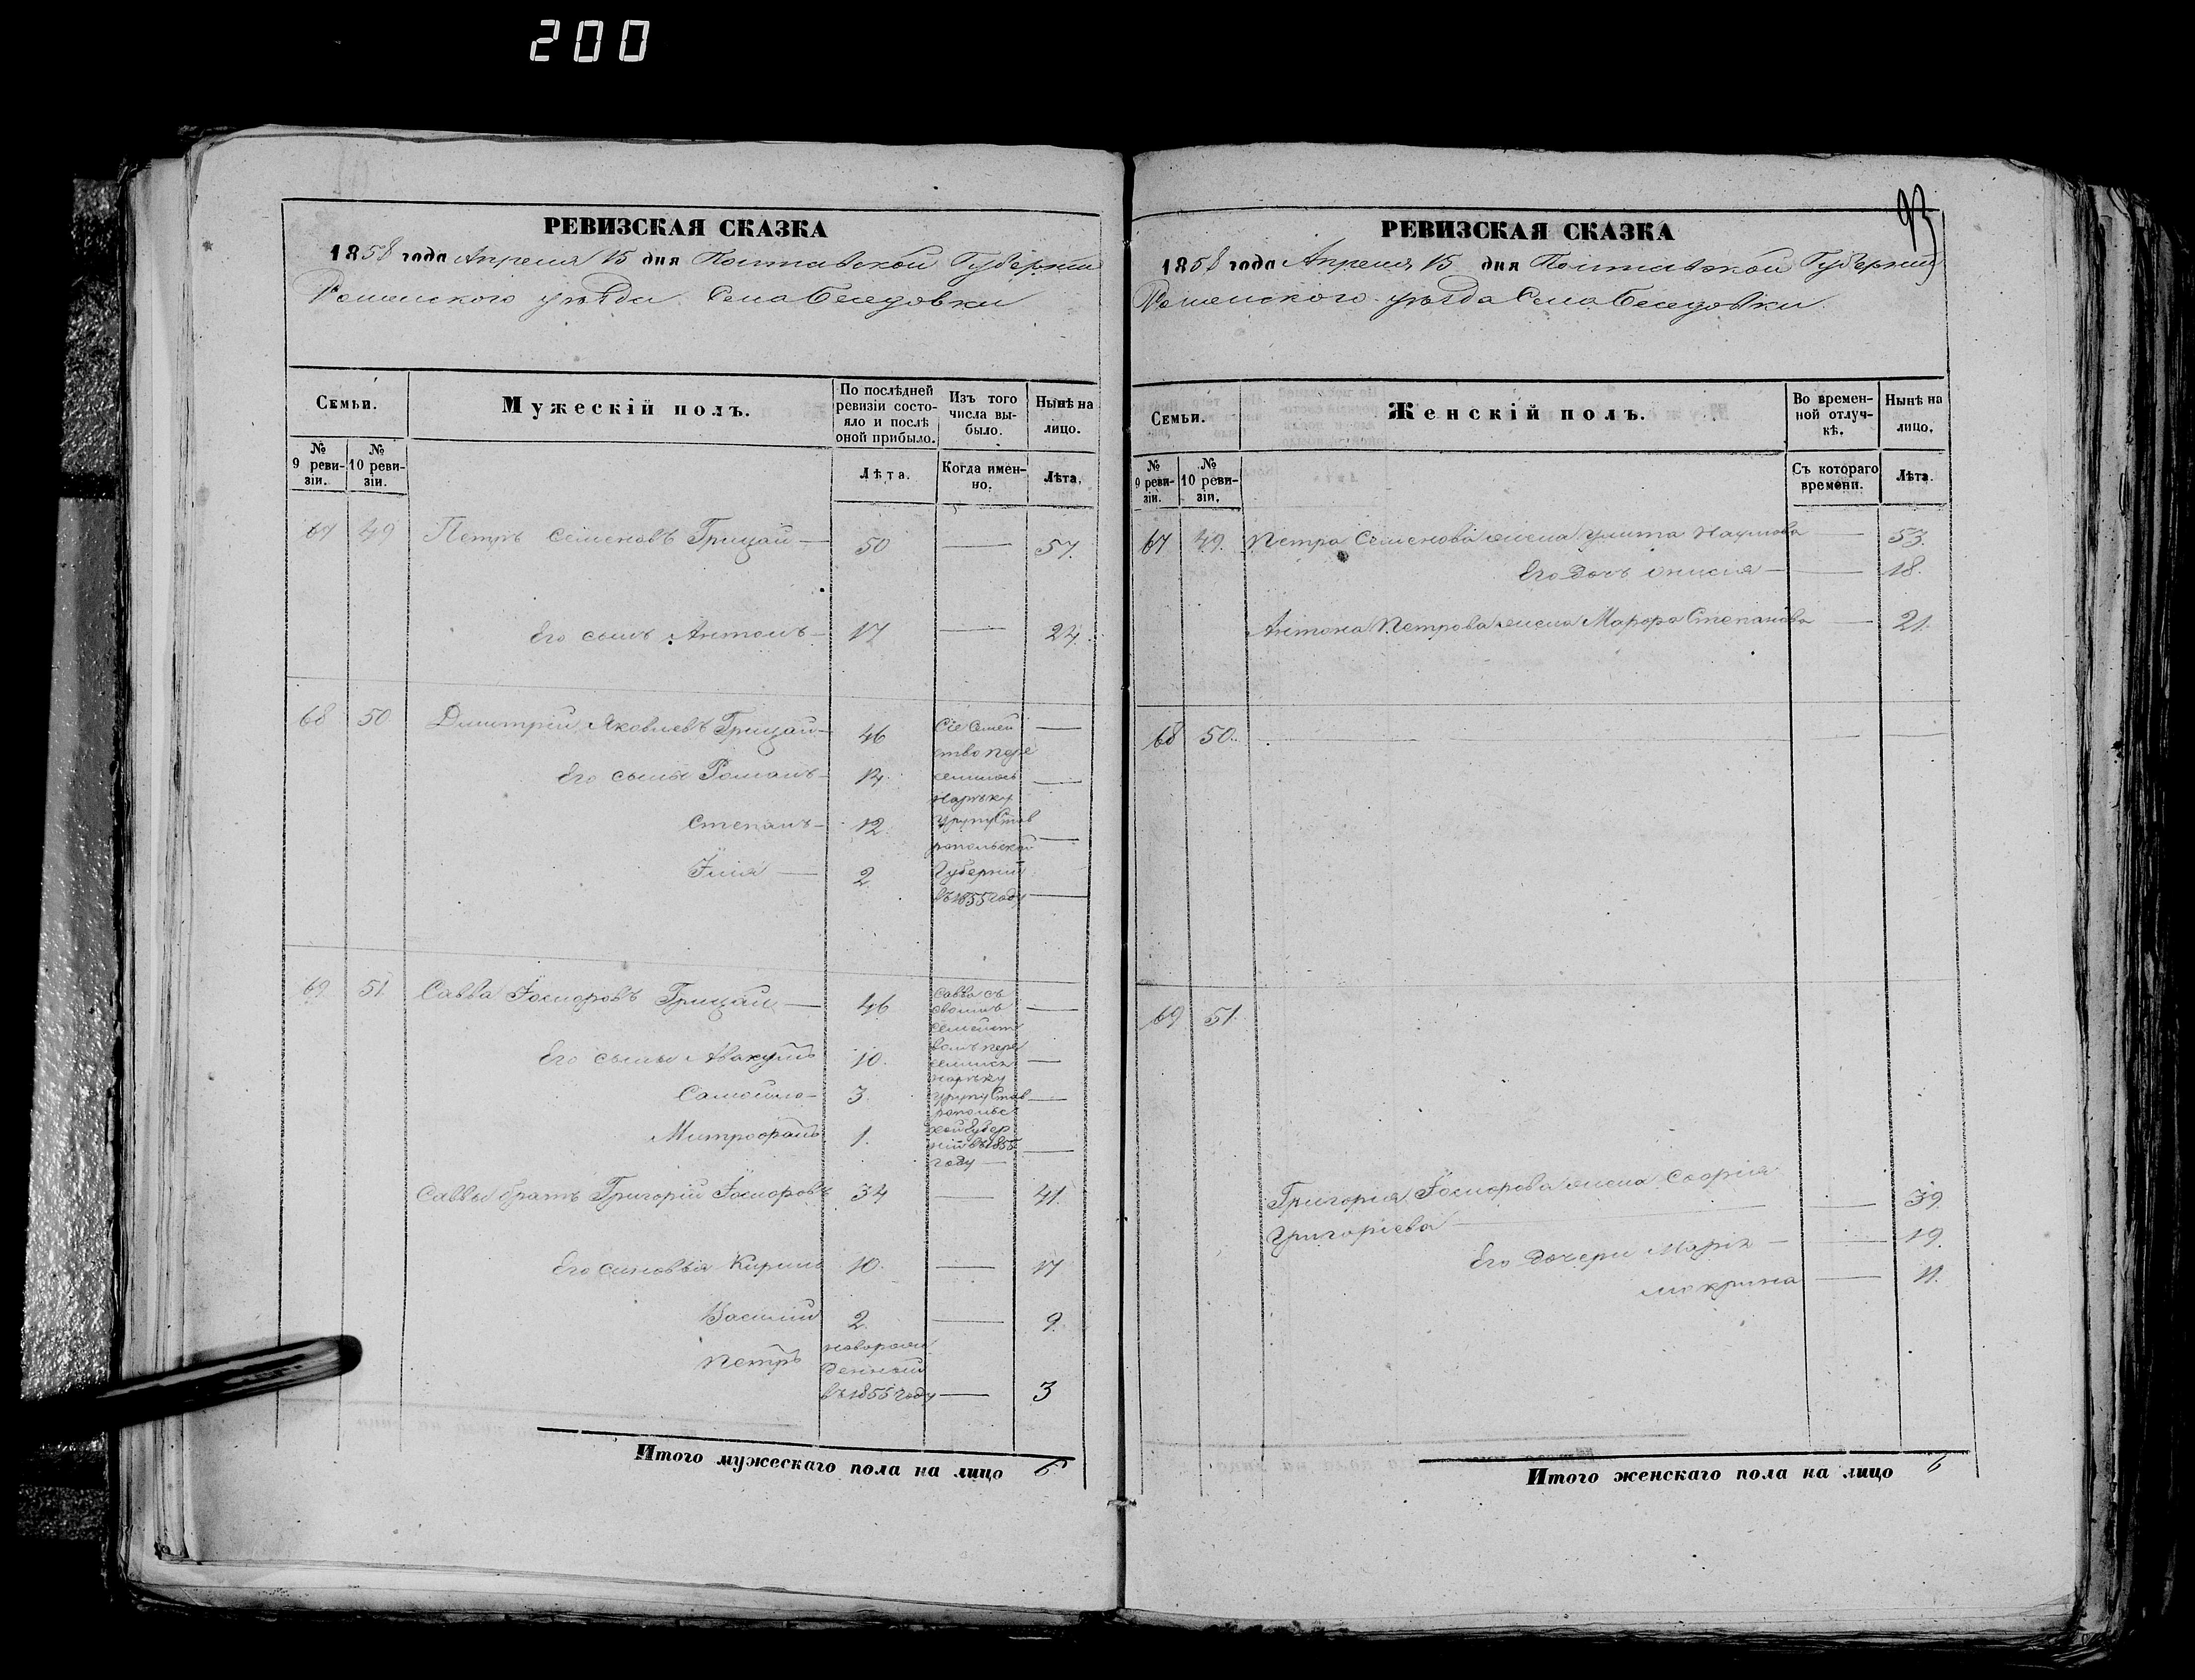 200
РЕВИЗСКАЯ СКАЗКА
1858 года Апреля 15 дня Полтавской Губерніи
Роменского уѣзда Села Беседовки
Семьи.
Мужескій полъ.
По послѣдней ревизіи состояло и послѣ оной прибыло.
Изъ того числа выбыло.
Нынѣ на лицо.
№ 9 ревизіи.
№ 10 ревизіи.
Лѣта.
Когда именно.
Лѣта.
67 49 Петръ Семеновъ Грицай — 50 — 57.
Его сынъ Антонъ — 17 — 24.
68 50 Дмитрій Яковлевъ Грицай — 46 —
Его сыны Романъ — 14. —
Степанъ — 12. —
Илія — 2. —
Сіе Семей
ство пере
селилось
нарѣку
Урупу Став
ропольской
Губерніи
въ 1855 году
69 51. Савва Іосифовъ Грицай — 46 —
Его сыны Авакумъ 10. —
Самойло — 3. —
Митрофанъ 1. —
Савва съ
своимъ
семейст
вомъ пере
селился
нарѣку
Урупу Став
ропольс
кой Губер
ніи въ 1855
году —
Саввы братъ Григорій Іосифовъ 34 — 41.
Его сыновья Кирилъ 10. — 17
Василій 2. — 9.
Петръ новорож
денный
въ 1855 году — 3
Итого мужескаго пола на лицо 6
93
РЕВИЗСКАЯ СКАЗКА
1858 года Апреля 15 дня Полтавской Губерніи
Роменского уѣзда Села Беседовки
Семьи.
Женскій полъ.
Во временной отлучкѣ.
Нынѣ на лицо.
№ 9 ревизіи.
№ 10 ревизіи.
Съ котораго времени.
Лѣта.
67 49. Петра Семенова жена Улита Наумова — 53.
Его дочь — 18.
Антона Петрова жена Марфа Степанова — 21.
68 50. — — —
69 51.
Григорія Іосифова жена Софія
Григоріева — — 39.
Его дочери Марія — — 19.
Мокрина — 11.
Итого женскаго пола на лицо 6